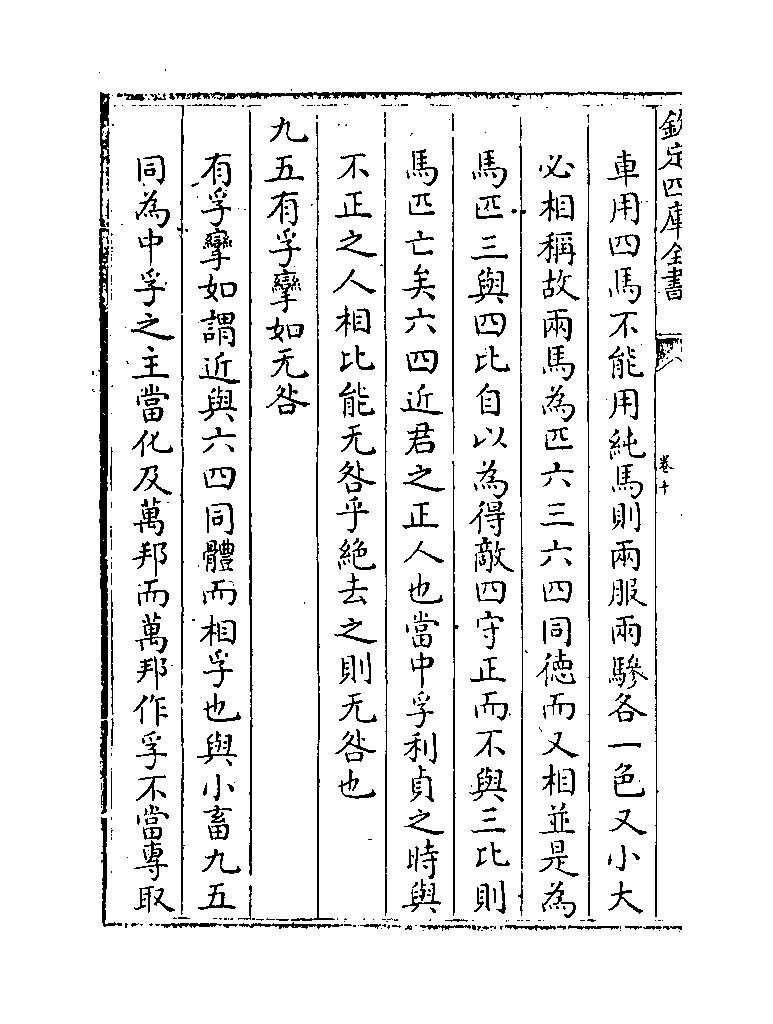 欽定四庫全書
卷十
車用四馬不能用純馬則兩服兩驂各一色又小大
必相稱故兩馬為匹六三六四同德而又相並是為
馬匹三與四比自以為得敵四守正而不與三比則
馬匹亡矣六四近君之正人也當中孚利貞之時與
不正之人相比能无咎乎絕去之則无咎也
九五有孚攣如无咎
有孚攣如謂近與六四同體而相孚也與小畜九五
同為中孚之主當化及萬邦而萬邦作孚不當專取